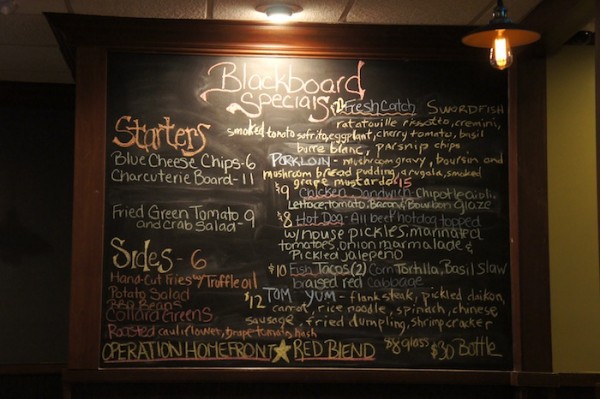 Blackboard
Specials
Starters
Blue Cheese Chips-6
Charcuterie Board-11
Fried Green Tomato
and Crab Salad-9
Sides-6
Hand-Cut Fries w/ Truffle oil
Potato Salad
BBQ Beans
Collard Greens
Roasted cauliflower, grape tomato, hash
Fresh Catch SWORDFISH
ratatouille risotto, cremini,
smoked tomato sofrito, eggplant, cherry tomato, basil
burre blanc, parsnip chips.
PORKLOIN - mushroom gravy, bourson and
mushroom bread pudding, arugala, smoked
grape mustard $15
$9 Chicken Sandwich-Chipotle aioli
Lettuce, tomato, Bacon/Bourbon Glaze
$8 Hot Dog-All beef hotdog topped
w/house pickles, marinated
tomatoes, onion marmalade &
Pickled jalepeño
$10 Fish Tacos(2) Corn Tortilla, Basil Slaw
braised red cabbage
$12 TOM YUM-flank steak, pickled daikon,
carrot, rice noodle, spinach, chinese
sausage, fried dumpling, shrimp cracker
OPERATION HOMEFRONT RED BLEND $8 glass $30 Bottle